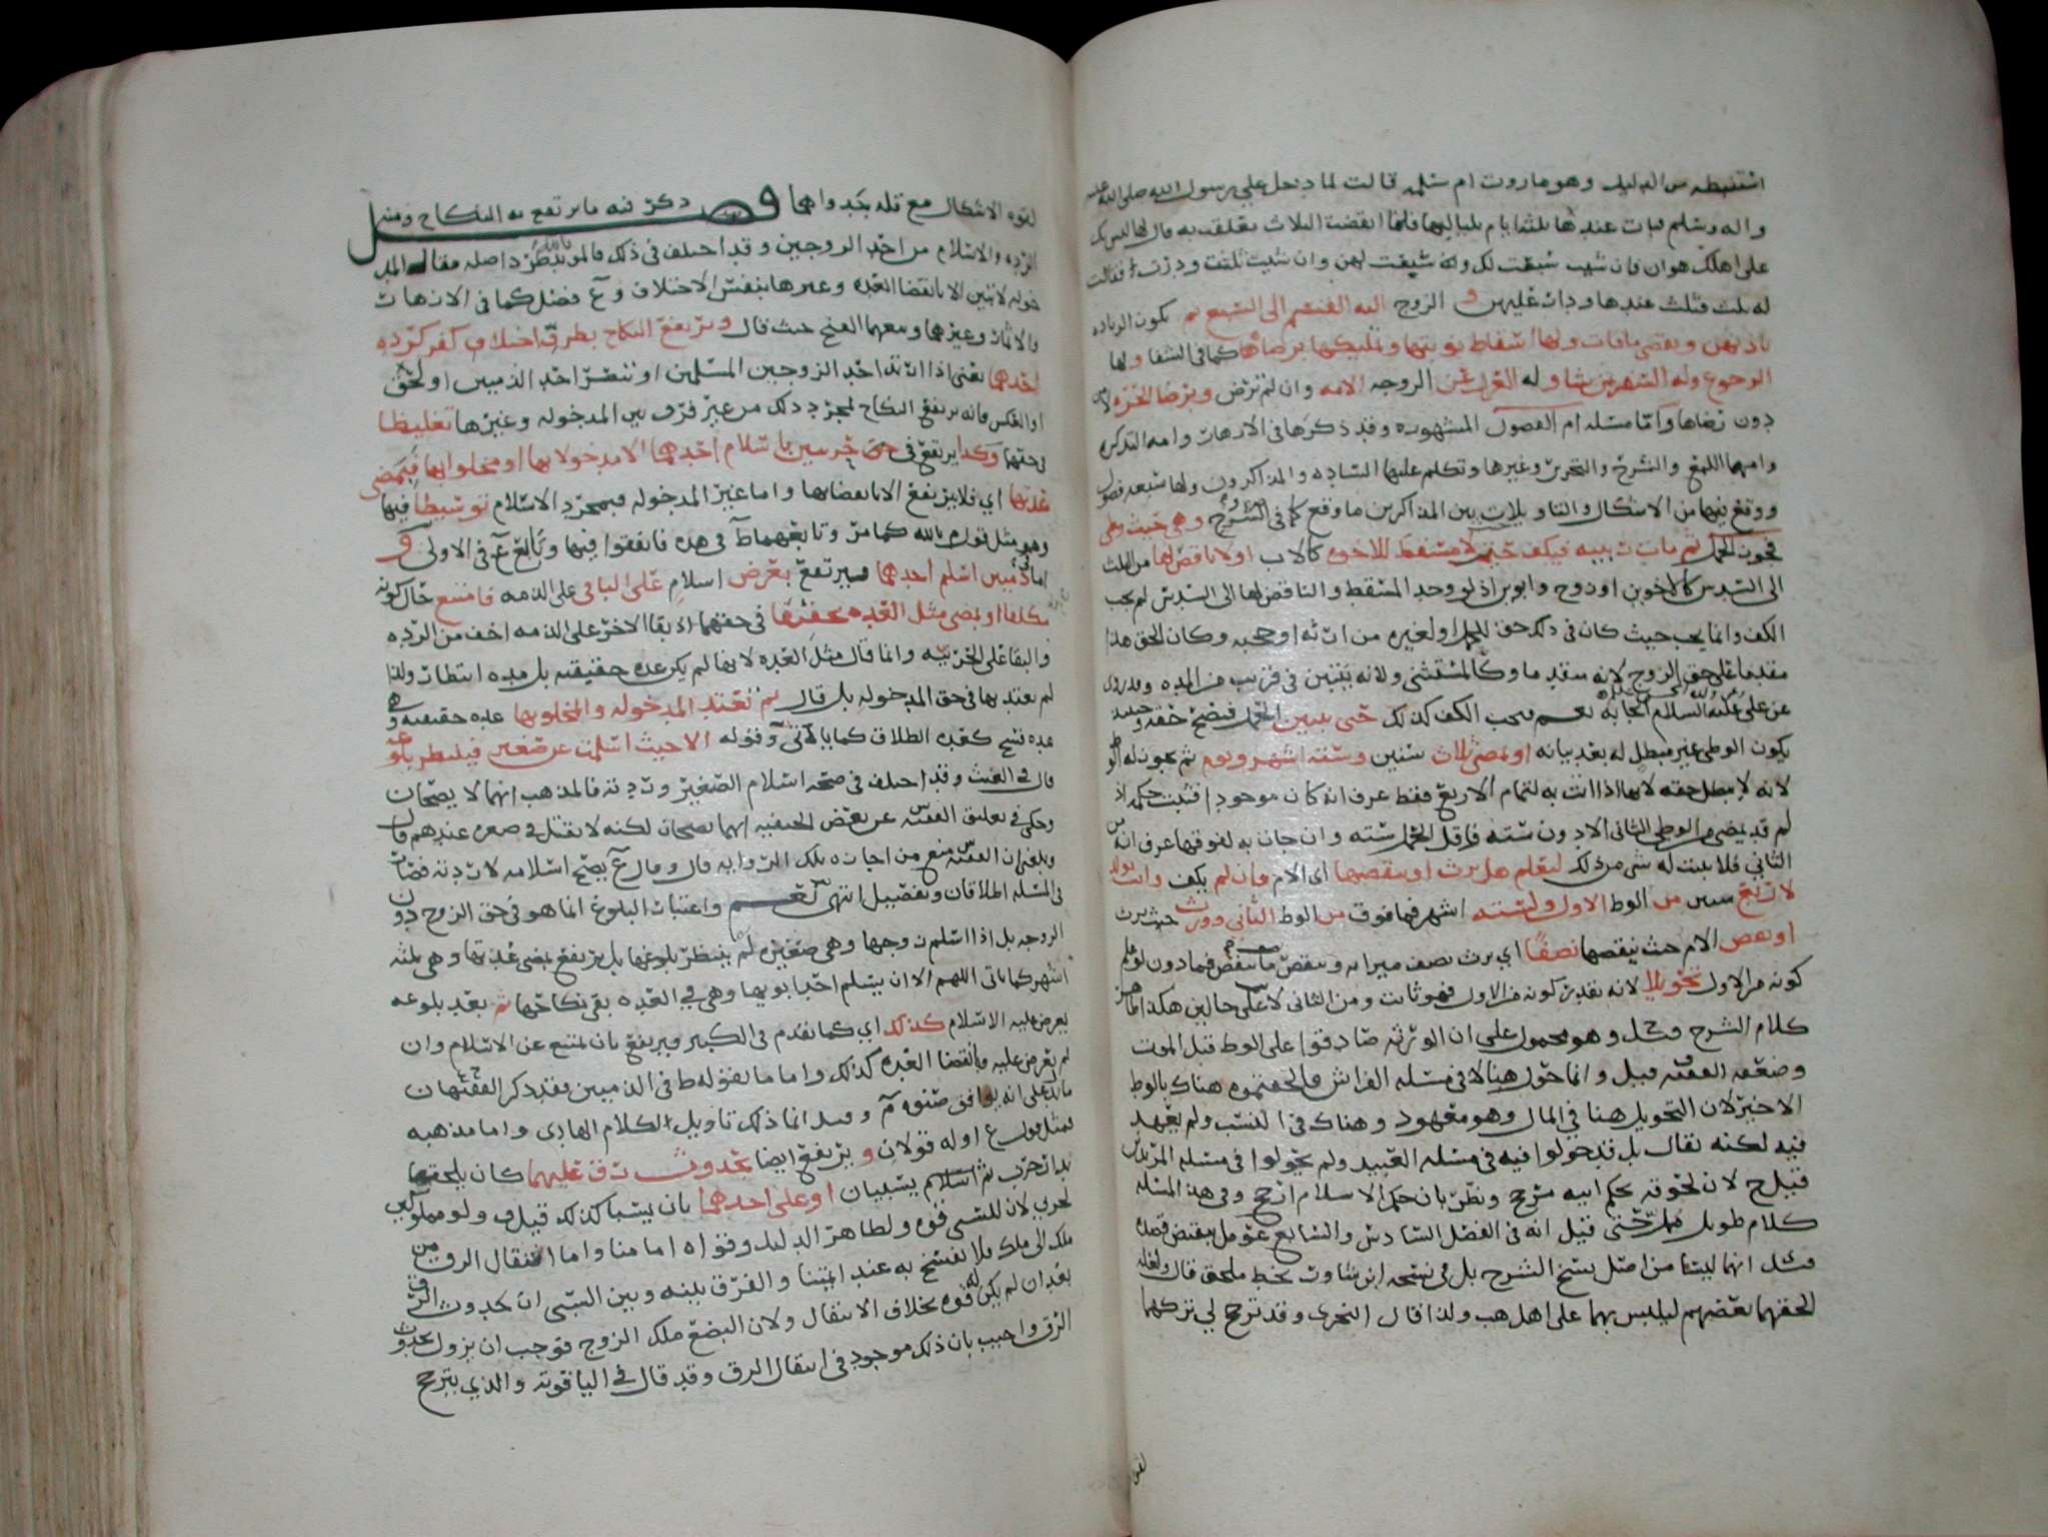 استنبطه من الدليل وهو ما روت ام سلمه قالت لما دخل علي رسول الله صلى الله عليه
واله وسلم فبات عندها ثلثة ايام بلياليها فلما انقضت الثلاث تعلقت به فقال لها ليس بك
على اهلك هوان فان شيت سبعت لك وان سبعت لهن وان شيت ثلثت ودرت فقالت
له ثلث فثلث عندها ودار عليهن و الزوج اليه القسم الى السبع ثم يكون الزياده
باذنهن ويقضي ما فات ولها اسقاط نوبتها وتمليكها برضاها كما في الشفا ولها
الرجوع وله السفر بمن شا وله العزل عن الزوجه الامه وان لم ترض وبرضا الحره لا
دون رضاها واما مسئله ام الفصول المشهوره وقد ذكرها في الازهار وامه التذكره
وامهما اللمع والشرح والتحرير وغيرها وتكلم عليها الساده والمذاكرون ولها سبعه فصول
ووقع فيها من الاشكال والتاويلات بين المذاكرين ما وقع كما في الشروح وهي حيث وطى
فجوز الحمل ثم مات ربيبه فيكف حتم لا مسقط للاخوه كالاب او لا ناقص لها من الثلث
الى السدس كالاخوين او زوج وابوين اذ لو وجد المسقط والناقص لها الى السدس لم يجب
الكف وانما يجب حيث كان في ذلك حق للحمل او لغيره من ارثه او حجبه وكان الحق هذا
مقدما على حق الزوج لانه متقدما وكالمستثنى ولانه يتبين في قريب من المده وقد روى
عن علي عليه السلام ايجابه نعم ويجب الكف كذلك حتى يتبين الحمل فيصح حقه وحينئذ
يكون الوطى غير مبطل له بعد بيانه او تمضي ثلاث سنين وسته اشهر ويوم ثم يجوز له الوط
لانه لا يبطل حقه لانها اذا اتت به لتمام الاربع فقط عرف انه كان موجودا فثبت حكمه اذ
لم قد يمضي من الوطي الثاني الا دون سته فاقل الحمل سته وان جات به لفوقها عرف انه من
الثاني فلا يثبت له شي من ذلك ليعلم هل يرث او ينقصها اى الام فان لم يكف واتت بولد
لاربع سنين من الوط الاول ولسته اشهر فما فوق من الوط الثاني وورث حيث يرث
او نقص الام حيث ينقصها نصفا اي يرث نصف ميراثه وينقص ما ينقص فيما دون لو علم
كونه من الاول تحويلا لانه بتقدير كونه من الاول فهو ثابت ومن الثاني لا على حالين هكذا ظاهر
كلام الشرح قيل وهو محمول على ان الورثه صادقوا على الوط قبل الموت
وضعفه الفقيه قيل وانما حول هنا لا في مسئله الفراش فالحقتموه هناك بالوط
الاخير لان التحويل هنا في المال وهو معهود وهناك في النسب ولم يعهد
فيه لكنه يقال بل قد حولوا فيه في مسئله العبيد ولم يحولوا في مسئله المرتدين
قيل ح لان لحوقه بحكم ابيه مرجح ونظر بان حكم الاسلام ارجح وفي هذا المسئله
كلام طويل حتى قيل انه في الفصل السادس والسابع عومل بنقيض قصده
وقيل انها ليست من اصل نسخ الشرح بل في نسخه ابن شاور بخط ملحق قال ولعله
الحقهما بعضهم ليلبس بهما على اهل هب ولذا قال النجرى وقد ترجح لي تركهما
لقو
لقوه الاشكال مع قله جدواهما فصل ذكر فيه ما يرتفع به النكاح ومنه
الرده والاسلام من احد الزوجين وقد اختلف في ذلك فالمرتد اصله مقاله المد
خوله لا تبين الا بانقضا العده وغيرها بنفس الاختلاف و ع فصل كما في الازهار
والاثمار وغيرهما وتبعهما الفتح حيث قال ويرتفع النكاح بطرو اختلاف كفر كرده
احدهما يعني اذا ارتد احد الزوجين المسلمين او تنصر احد الذميين او لحق
او العكس فانه يرتفع النكاح لمجرد ذلك من غير فرق بين المدخوله وغيرها تغليظا
في حقها وكذا يرتفع في حق حربيين باسلام احدهما الا مدخولا بها او مخلوا بها فبمضي
عدتها اي فلا يرتفع الا بانقضائها واما غير المدخوله فبمجرد الاسلام توسيطا فيها
وهو مثل قول م بالله كما مر وتابعهما ط في هذه فاتفقوا فيها وتابع ع في الاولى و
اما ذميين اسلم احدهما فيرتفع بعرض اسلام على الباقي على الذمه فامتنع حال كونه
مكلفا او بمضي مثل العده تخفيفا في حقهما اذ بقا الاخر على الذمه اخف من الرده
والبقا على الحربيه وانما قال مثل العده لانها لم يكن عده حقيقيه بل مده انتظار ولذا
لم يعتد بها في حق المدخوله بل قال ثم تعتد المدخوله والمخلو بها عده حقيقيه وهي
عده فسخ كعده الطلاق كما ياتي وقوله الا حيث اسلمت عن صغير فينتظر بلوغه
قال في الغيث وقد اختلف في صحه اسلام الصغير وردته فالمذهب انهما لا يصحان
وحكى في تعليق الفقيه س عن بعض الحنفيه انهما يصحان لكنه لا يقتل في صغره عندهم قال
وبلغني ان الفقيه س منع من اجازه تلك الروايه قال وقال ع يصح اسلامه لا ردته فصار
في المسئله اطلاقان وتفصيل انتهى نعم واعتبار البلوغ انما هو في حق الزوج دون
الزوجه بل اذا اسلم زوجها وهي صغيره لم ينتظر بلوغها بل يرتفع بمضي عدتها وهي ثلثه
اشهر كما ياتي اللهم الا ان يسلم احد ابويها وهي في العده بقي نكاحها ثم بعد بلوغه
يعرض عليه الاسلام كذلك اي كما تقدم في الكبير ويرتفع بان يمتنع عن الاسلام وان
لم يعرض عليه فانقضا العده كذلك واما ما يقوله ط في الذميين فقد ذكر الفقيهان
ما يدل على انه يوافق صنوه م وقيل انما ذلك تاويل لكلام الهادى واما مذهبه
فمثل قول ع او له قولان و يرتفع ايضا بحدوث رق عليهما كان يلحقها
بدار حرب ثم اسلام يسبيان او على احدهما بان يسبا كذلك قيل و ولو مملوكين
لحربي لان للسبي قوه ولظاهر الدليل وقواه امامنا واما انتقال الرق من
ملك الى ملك فلا ينفسخ به عند ائمتنا والفرق بينه وبين السبي ان حدوث الرق
بعد ان لم يكن له قوه بخلاف الانتقال ولان البضع ملك الزوج فوجب ان يزول بحدوث
الرق واجيب بان ذلك موجود في انتقال الرق وقد قال في الياقوته والذي يترجح